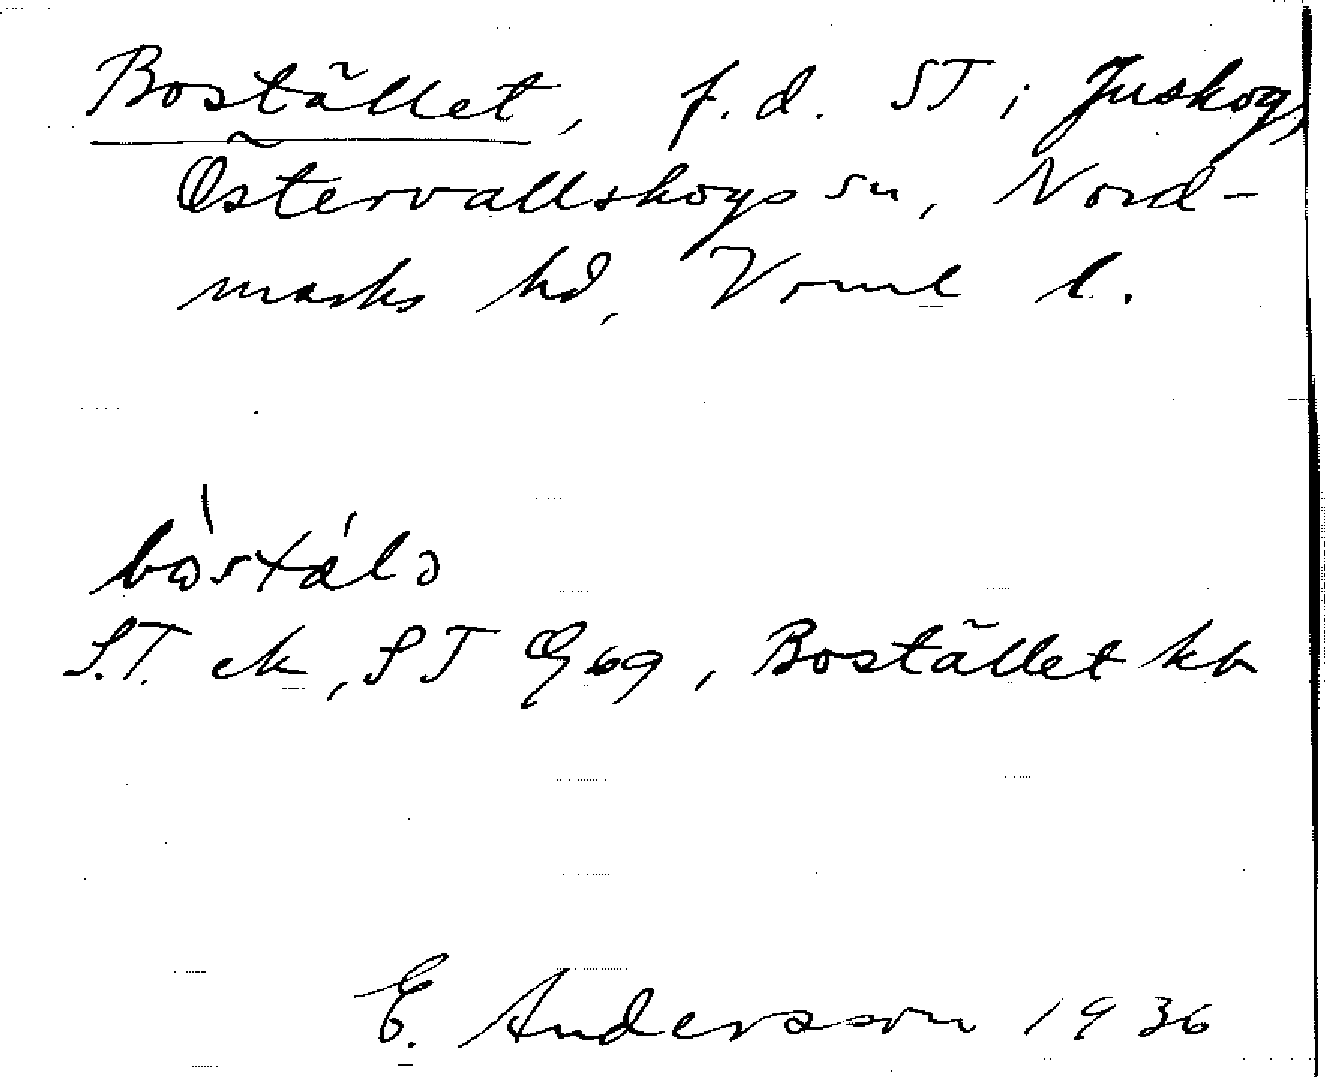 Bostället, f.d. ST i Juskog,
Östervallskogs sn, Nord-
marks hd, Vrml l.
bòstálə
S.T. ek, ST G69, Bostället kb
E. Andersson 1936